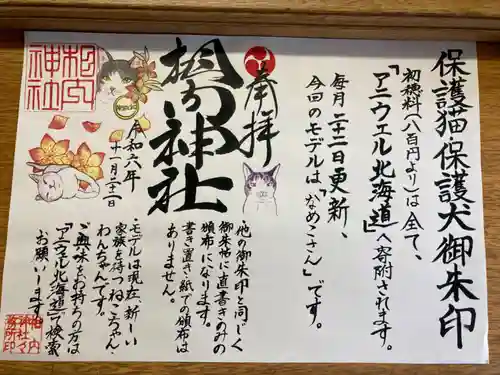 保護猫・保護犬御朱印
初穂料（八百円より）は全て、
「アニウェル北海道」へ寄附されます。
毎月二十二日更新、
今回のモデルは「なめこさん」です。
奉拝
相内神社
令和六年
十一月二十二日
相内
神社
他の御朱印と同じく
御朱帖に直書きのみの
頒布になります。
書き置き・紙での頒布は
ありません。
・モデルは現在、新しい
家族を待つねこちゃん・
わんちゃんです。
ご興味をお持ちの方は
「アニウェル北海道」で検索
お願いします。